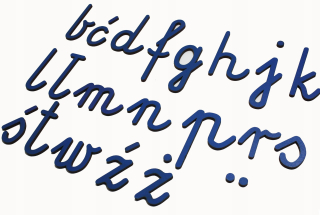 b ć d f g h j k
l ł m n p r s
ś t w ź ż ..